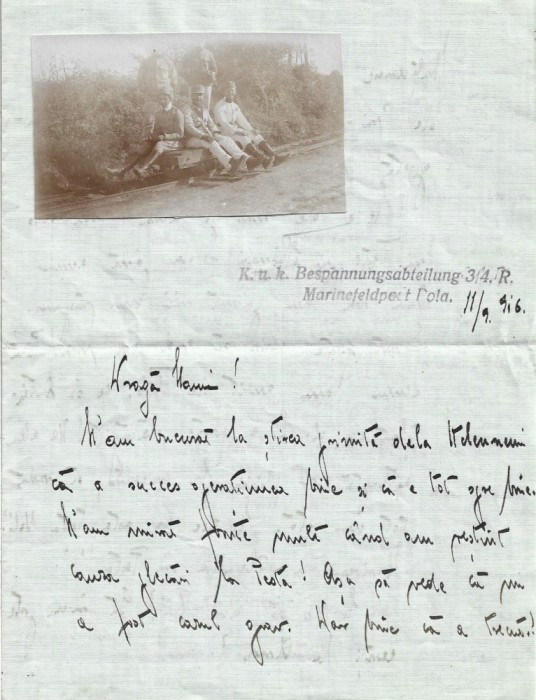 K. u. k. Bespannungsabteilung 3/4. R.
Marinefeldpost Pola.
11/9. 916.
Dragă Mami!
M'am bucurat la știrea primită dela
că a succes operațiunea bine și că e tot spre bine.
M'am mirat mult când am
cauza plecări la Pesta! Așa să vede că nu
a fost casul grav. Dar bine că a trecut!